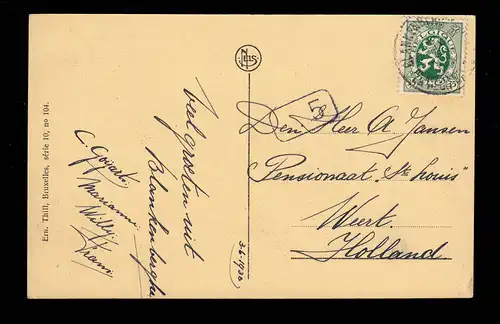 Ern. Thill, Bruxelles, série 10, no 104.
Veel groeten uit
Blankenberghe
C. Gogarti
Marianne
Willy
Fram
3-6-1930
NELS
BELGIQUE
5B
Den Heer A Jansen
Pensionaat "St Louis"
Weert.
Holland